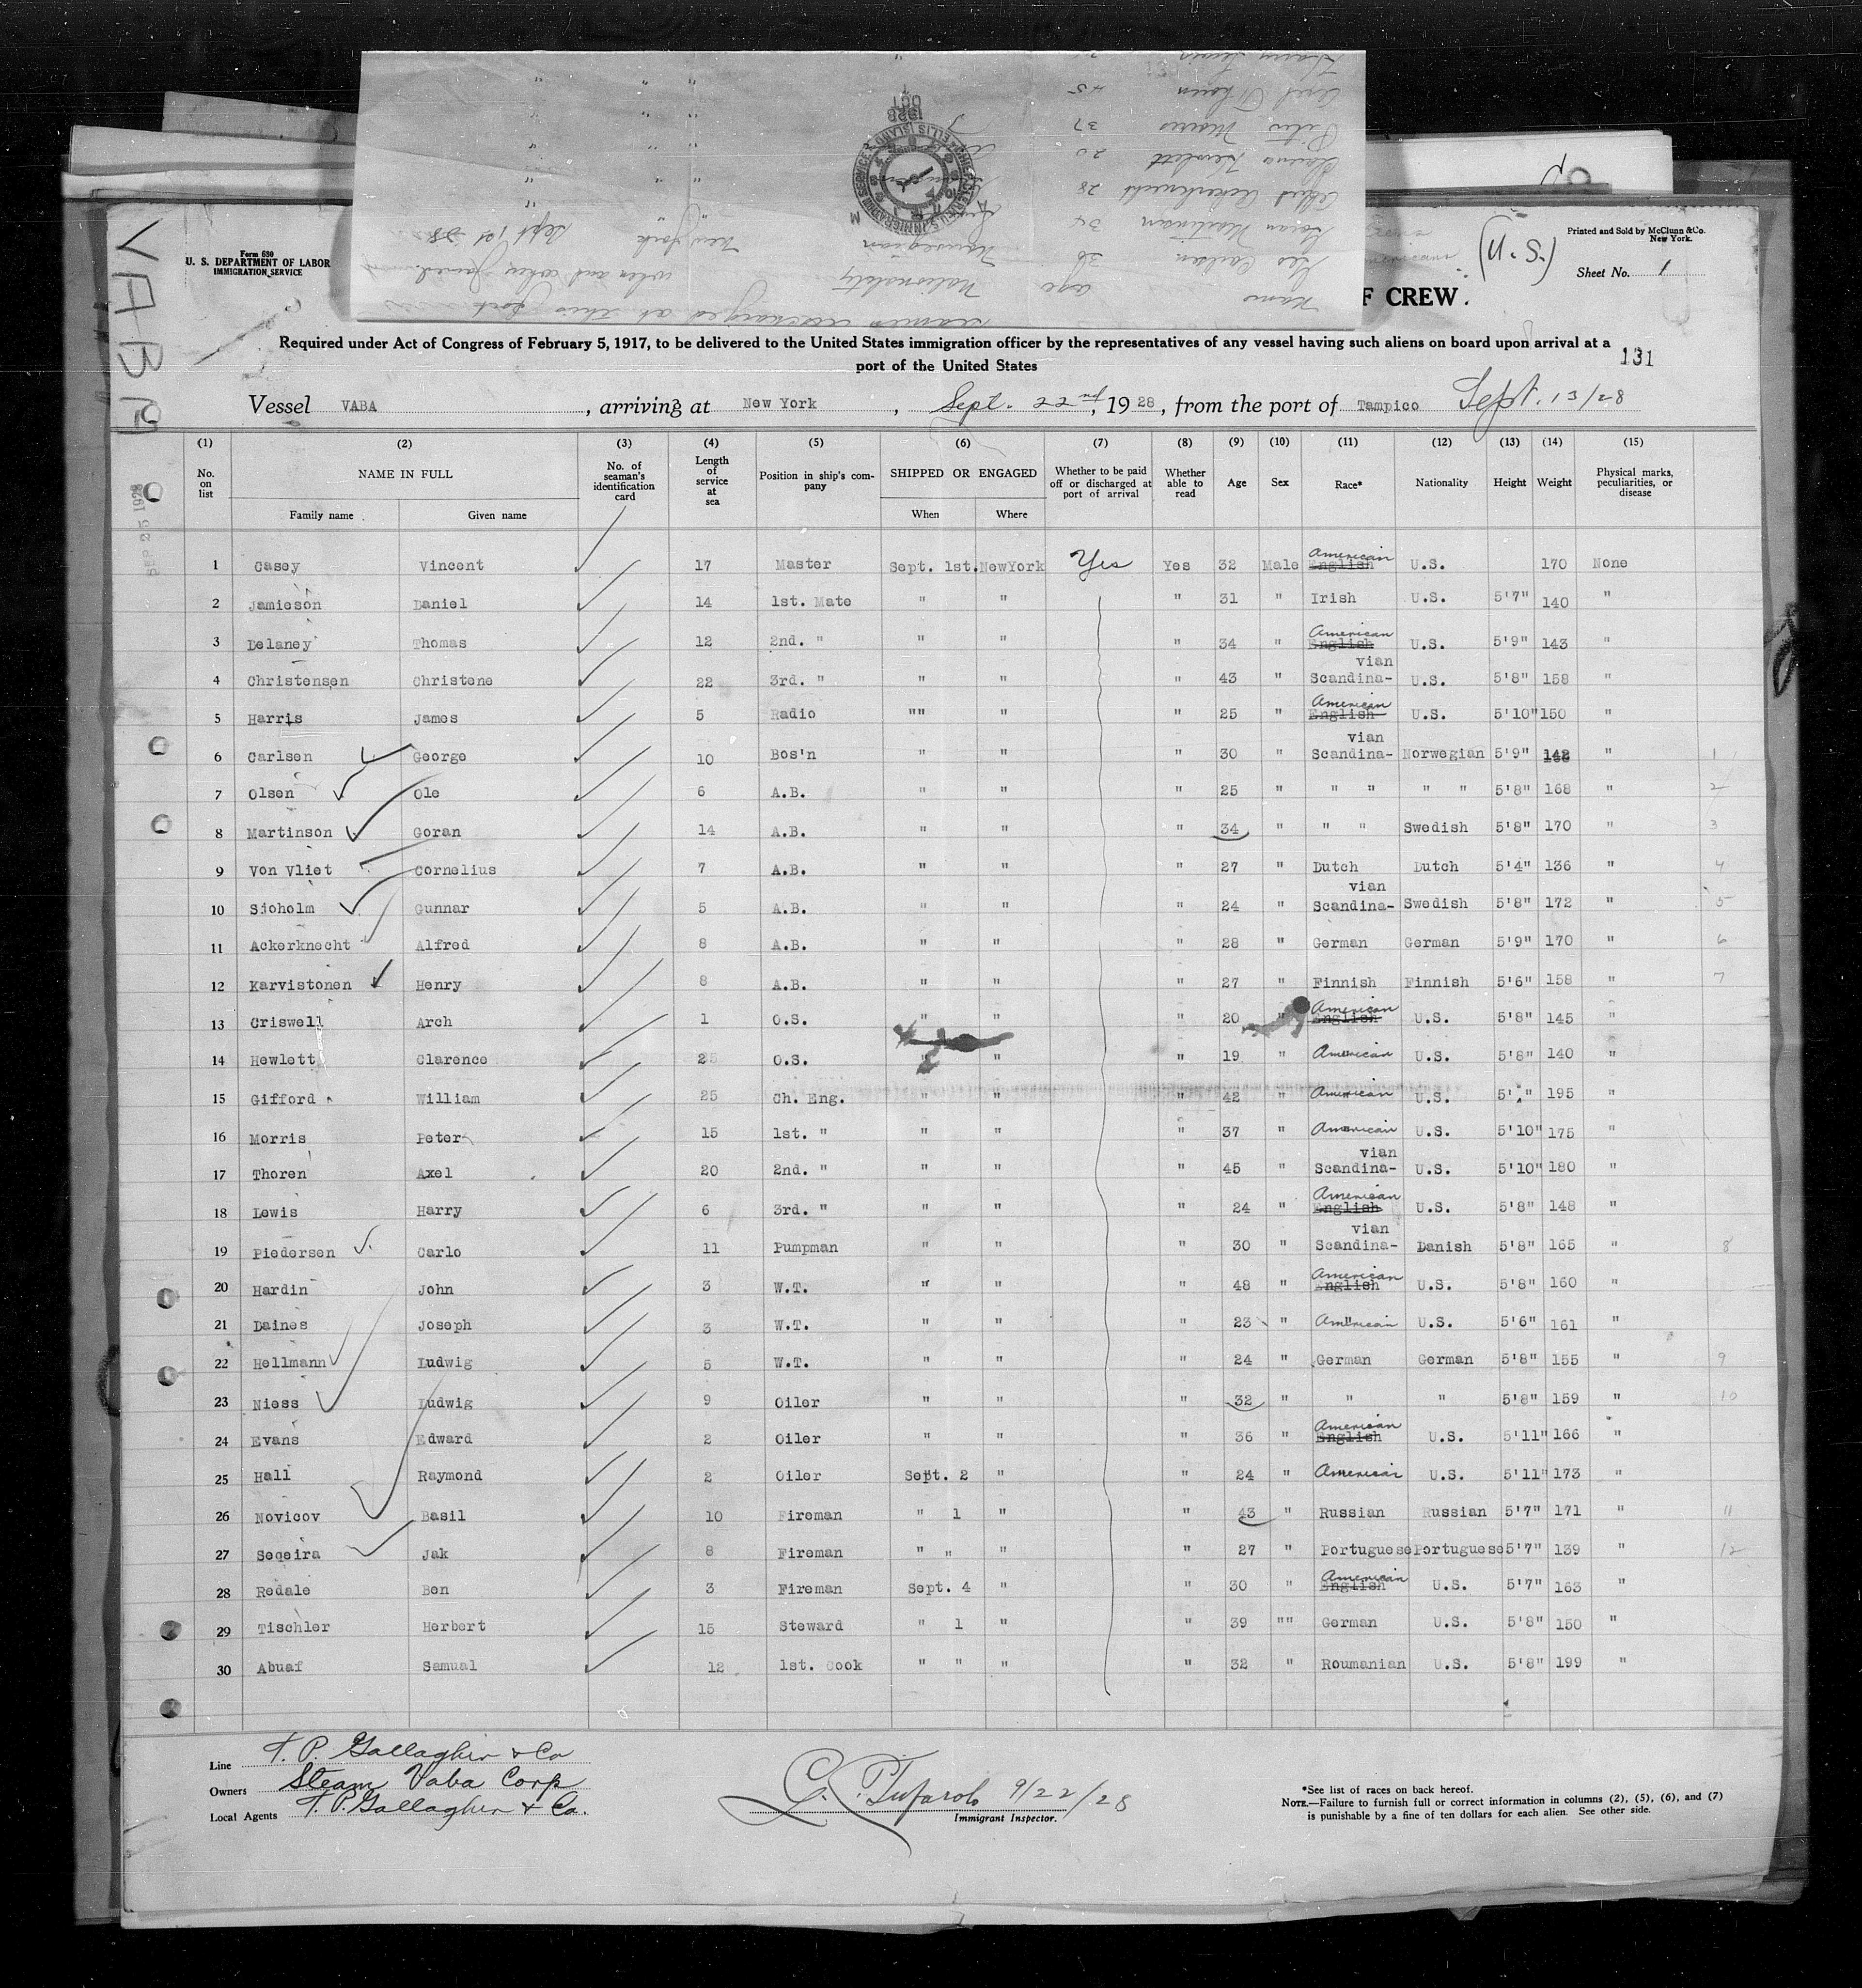 Seamen discharged at this port
Name age Nationality when and where joined
Geo Carlsen 30 Norwegian New York Sept 1st 28
Goran Martinson 34 " "
Alfred Ackerknecht 28 " " "
20
Peter Morris 37
Axel Thoren 45 " "
Harry Lewis "
U.S. IMMIGRATION SERVICE ELLIS ISLAND
OCT 1928
VABA
Form 680
U. S. DEPARTMENT OF LABOR
IMMIGRATION SERVICE
(U.S.)
Printed and Sold by McClunn & Co.
New York.
Sheet No. 1
F CREW.
Required under Act of Congress of February 5, 1917, to be delivered to the United States immigration officer by the representatives of any vessel having such aliens on board upon arrival at a
port of the United States
131
Vessel VABA, arriving at New York, Sept. 22nd, 1928, from the port of Tampico Sept. 13/28
SEP 25 1928
(1) (2) (3) (4) (5) (6) (7) (8) (9) (10) (11) (12) (13) (14) (15)
No. on list NAME IN FULL No. of seaman's identification card Length of service at sea Position in ship's company SHIPPED OR ENGAGED Whether to be paid off or discharged at port of arrival Whether able to read Age Sex Race* Nationality Height Weight Physical marks, peculiarities, or disease
Family name Given name When Where
1 Casey Vincent 17 Master Sept. 1st. NewYork Yes Yes 32 Male English American U.S. 170 None
2 Jamieson Daniel 14 1st. Mate " " " 31 " Irish U.S. 5'7" 140 "
3 Delaney Thomas 12 2nd. " " " " 34 " English American U.S. 5'9" 143 "
4 Christensen Christene 22 3rd. " " " " 43 " Scandina-vian U.S. 5'8" 158 "
5 Harris James 5 Radio "" " " 25 " English American U.S. 5'10" 150 "
6 Carlsen George 10 Bos'n " " " 30 " Scandina-vian Norwegian 5'9" " 1
7 Olsen Ole 6 A.B. " " " 25 " " " " " 5'8" 168 " 2
8 Martinson Goran 14 A.B. " " " 34 " " " Swedish 5'8" 170 " 3
9 Von Vliet Cornelius 7 A.B. " " " 27 " Dutch Dutch 5'4" 136 " 4
10 Sjoholm Gunnar 5 A.B. " " " 24 " Scandina-vian Swedish 5'8" 172 " 5
11 Ackerknecht Alfred 8 A.B. " " " 28 " German German 5'9" 170 " 6
12 Karvistonen Henry 8 A.B. " " " 27 " Finnish Finnish 5'6" 158 " 7
13 Criswell Arch 1 O.S. " " " 20 " English American U.S. 5'8" 145 "
14 Hewlett Clarence 2 O.S. " " " 19 " American U.S. 5'8" 140 "
15 Gifford William 25 Ch. Eng. " " " 42 " American U.S. 5' " 195 "
16 Morris Peter 15 1st. " " " " 37 " American U.S. 5'10" 175 "
17 Thoren Axel 20 2nd. " " " " 45 " Scandina-vian U.S. 5'10" 180 "
18 Lewis Harry 6 3rd. " " " " 24 " English American U.S. 5'8" 148 "
19 Piedersen Carlo 11 Pumpman " " " 30 " Scandina-vian Danish 5'8" 165 " 8
20 Hardin John 3 W.T. " " " 48 " English American U.S. 5'8" 160 "
21 Daines Joseph 3 W.T. " " " 23 " American U.S. 5'6" 161 "
22 Hellmann Ludwig 5 W.T. " " " 24 " German German 5'8" 155 " 9
23 Niess Ludwig 9 Oiler " " " 32 " " " 5'8" 159 " 10
24 Evans Edward 2 Oiler " " " 36 " English American U.S. 5'11" 166 "
25 Hall Raymond 2 Oiler Sept. 2 " " 24 " American U.S. 5'11" 173 "
26 Novicov Basil 10 Fireman " 1 " " 43 " Russian Russian 5'7" 171 " 11
27 Seqeira Jak 8 Fireman " " " " 27 " Portuguese Portuguese 5'7" 139 " 12
28 Redale Ben 3 Fireman Sept. 4 " " 30 " English American U.S. 5'7" 163 "
29 Tischler Herbert 15 Steward " 1 " " 39 "" German U.S. 5'8" 150 "
30 Abuaf Samual 12 1st. Cook " " " " 32 " Roumanian U.S. 5'8" 199 "
Line T. P. Gallagher & Co
Owners Steam Vaba Corp
Local Agents T. P. Gallagher & Co.
9/22/28
Immigrant Inspector.
*See list of races on back hereof.
NOTE.—Failure to furnish full or correct information in columns (2), (5), (6), and (7)
is punishable by a fine of ten dollars for each alien. See other side.